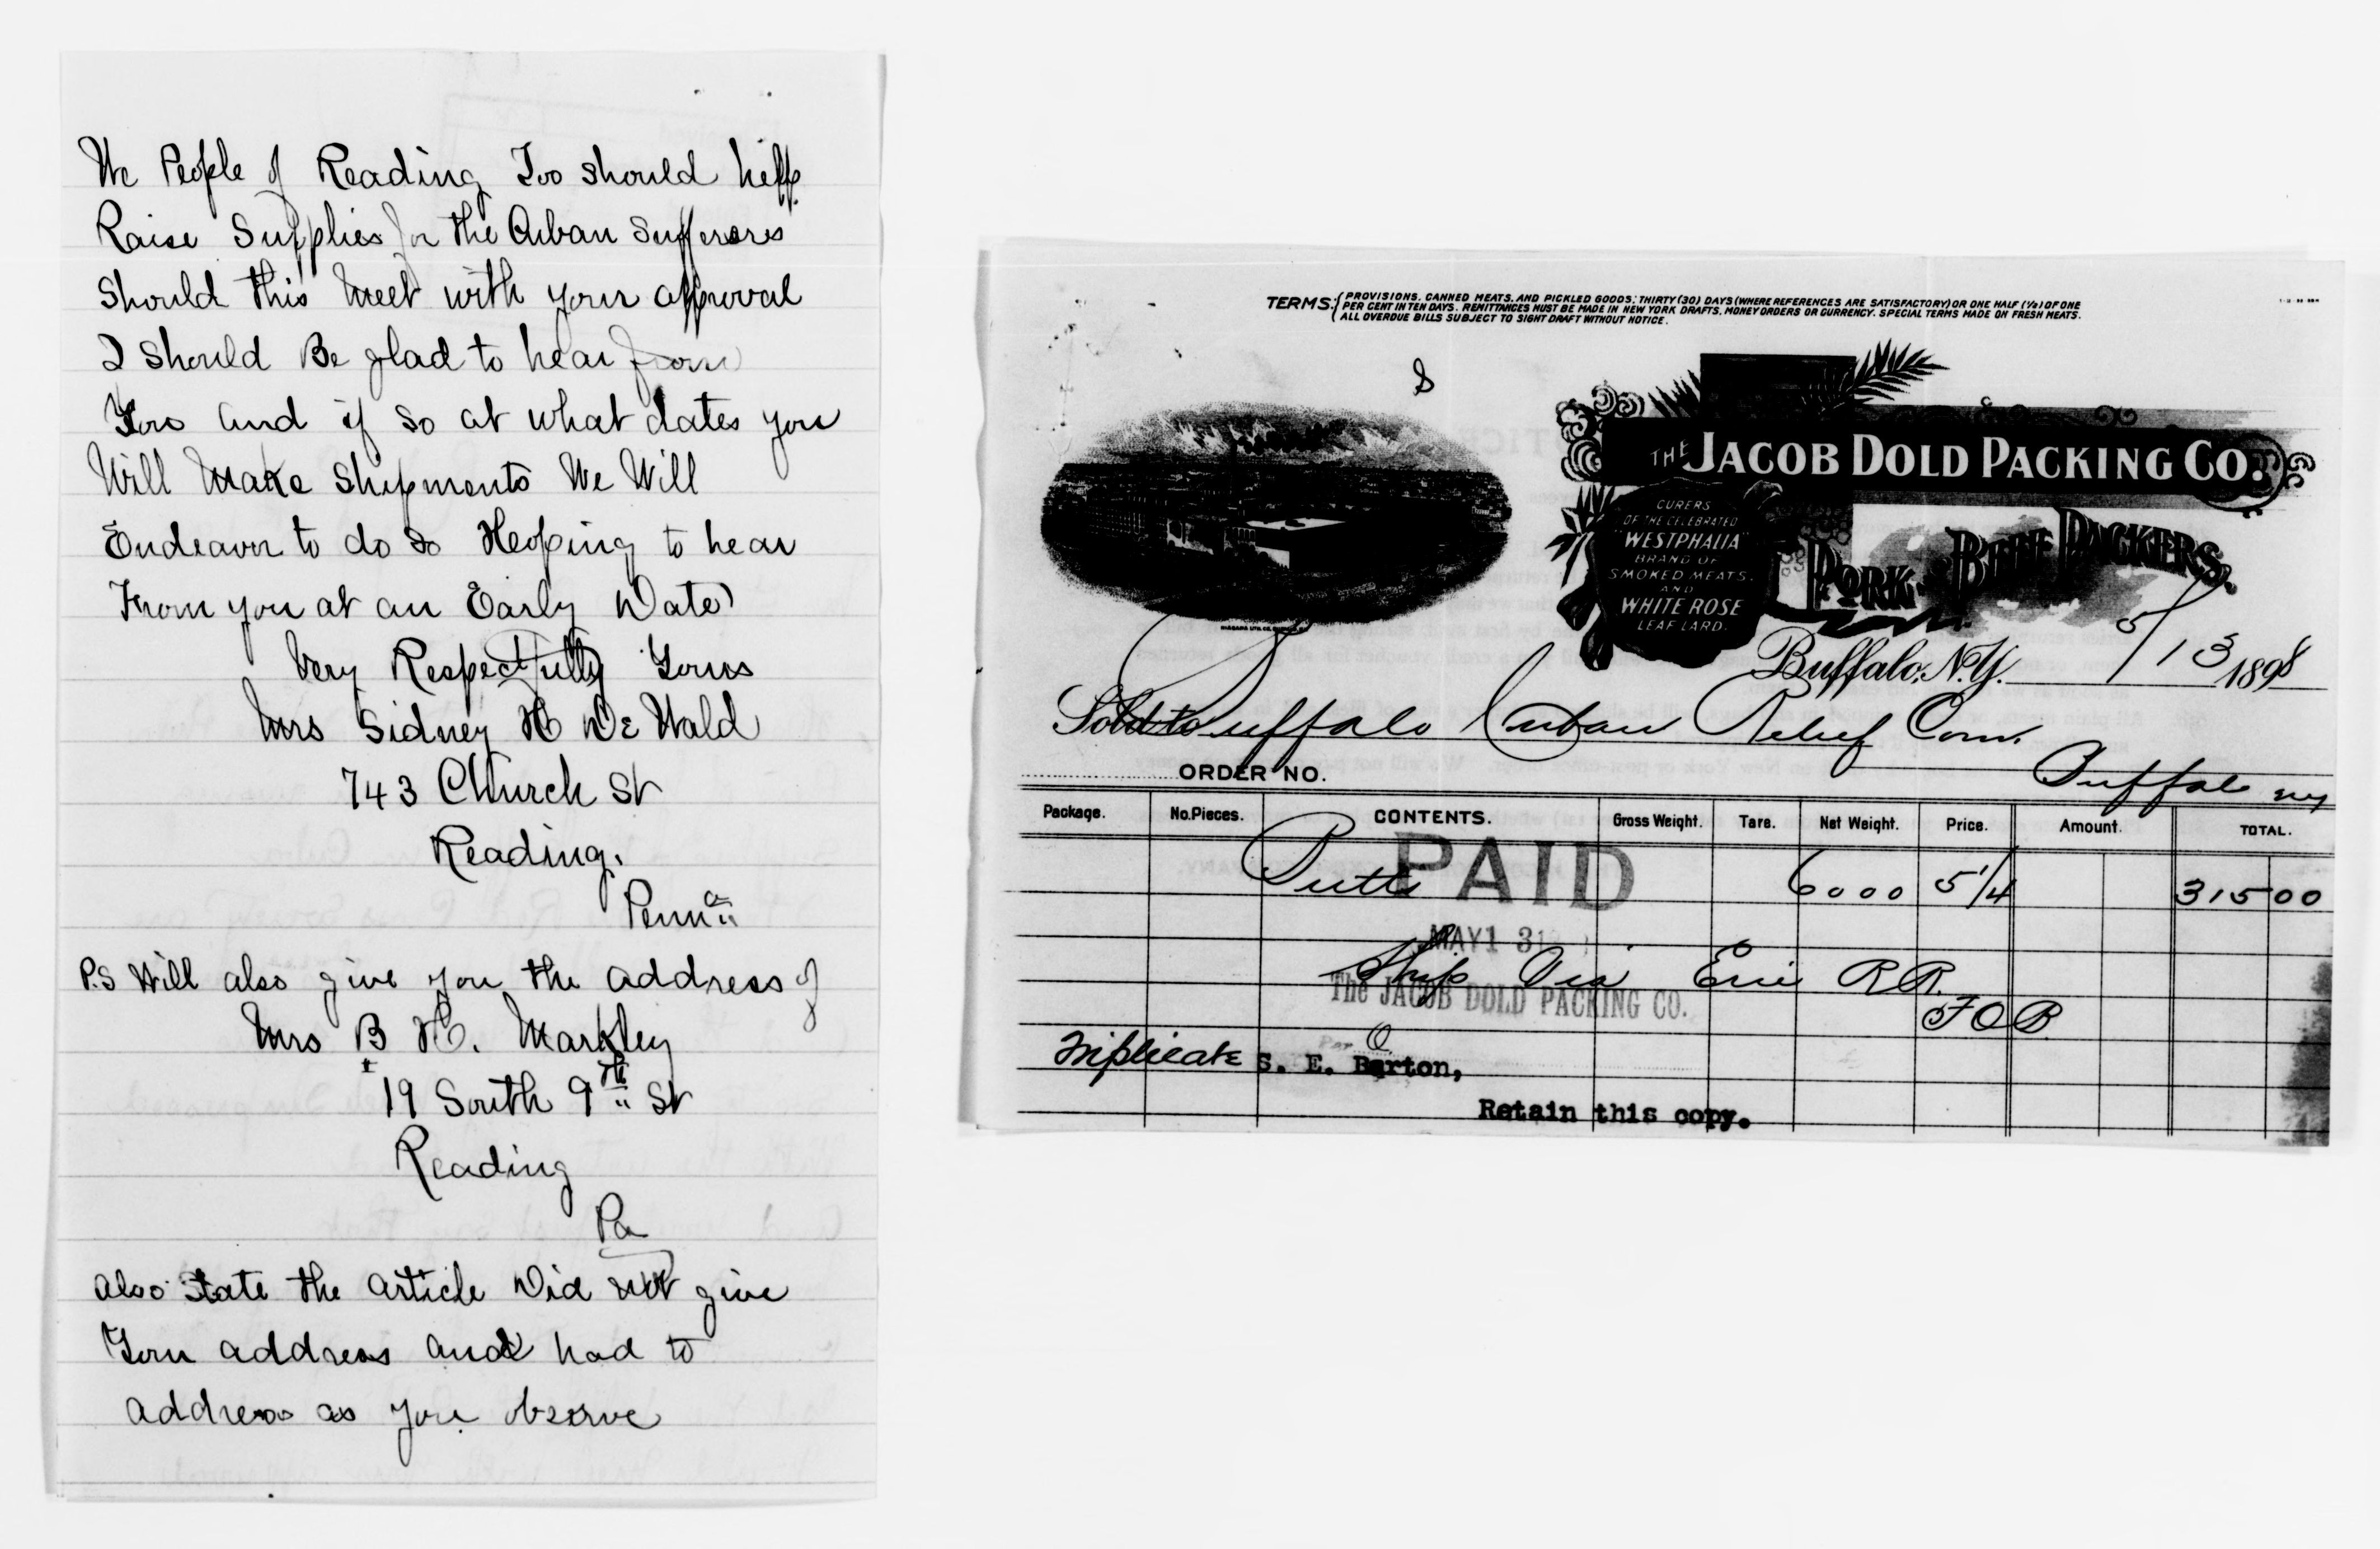 We People of Reading Too should help
Raise Supplies for the Cuban Sufferers
Should this meet with your approval
I should Be glad to hear from
You and if so at what dates you
Will Make Shipments We Will
Endeavor to do so Hopping to hear
From you at an Early Date
Very Respectfully Yours
Mrs Sidney H De Wald
743 Church St
Reading.
Penna
P.S Will also give you the address of
Mrs B H. Markley
19 South 9th St
Reading
Pa
Also State the article Did not give
Your address and had to
address as you observe
TERMS: PROVISIONS, CANNED MEATS, AND PICKLED GOODS; THIRTY (30) DAYS (WHERE REFERENCES ARE SATISFACTORY) OR ONE HALF (½) OF ONE
PER CENT IN TEN DAYS. REMITTANCES MUST BE MADE IN NEW YORK DRAFTS, MONEY ORDERS OR CURRENCY. SPECIAL TERMS MADE ON FRESH MEATS.
ALL OVERDUE BILLS SUBJECT TO SIGHT DRAFT WITHOUT NOTICE.
THE JACOB DOLD PACKING CO.
CURERS
OF THE CELEBRATED
"WESTPHALIA"
BRAND OF
SMOKED MEATS.
AND
WHITE ROSE
LEAF LARD.
PORK AND BEEF PACKERS.
Buffalo, N.Y. 5/13 1898
Sold to Buffalo Cuban Relief Com.
Buffalo NY
ORDER NO.
Package. No. Pieces. CONTENTS. Gross Weight. Tare. Net Weight. Price. Amount. TOTAL.
Butts 6000 5 1/4 315 00
PAID
MAY 13
Ship Via Erie RR.
The JACOB DOLD PACKING CO.
FOB
Per
Triplicate S. E. Barton,
Retain this copy.